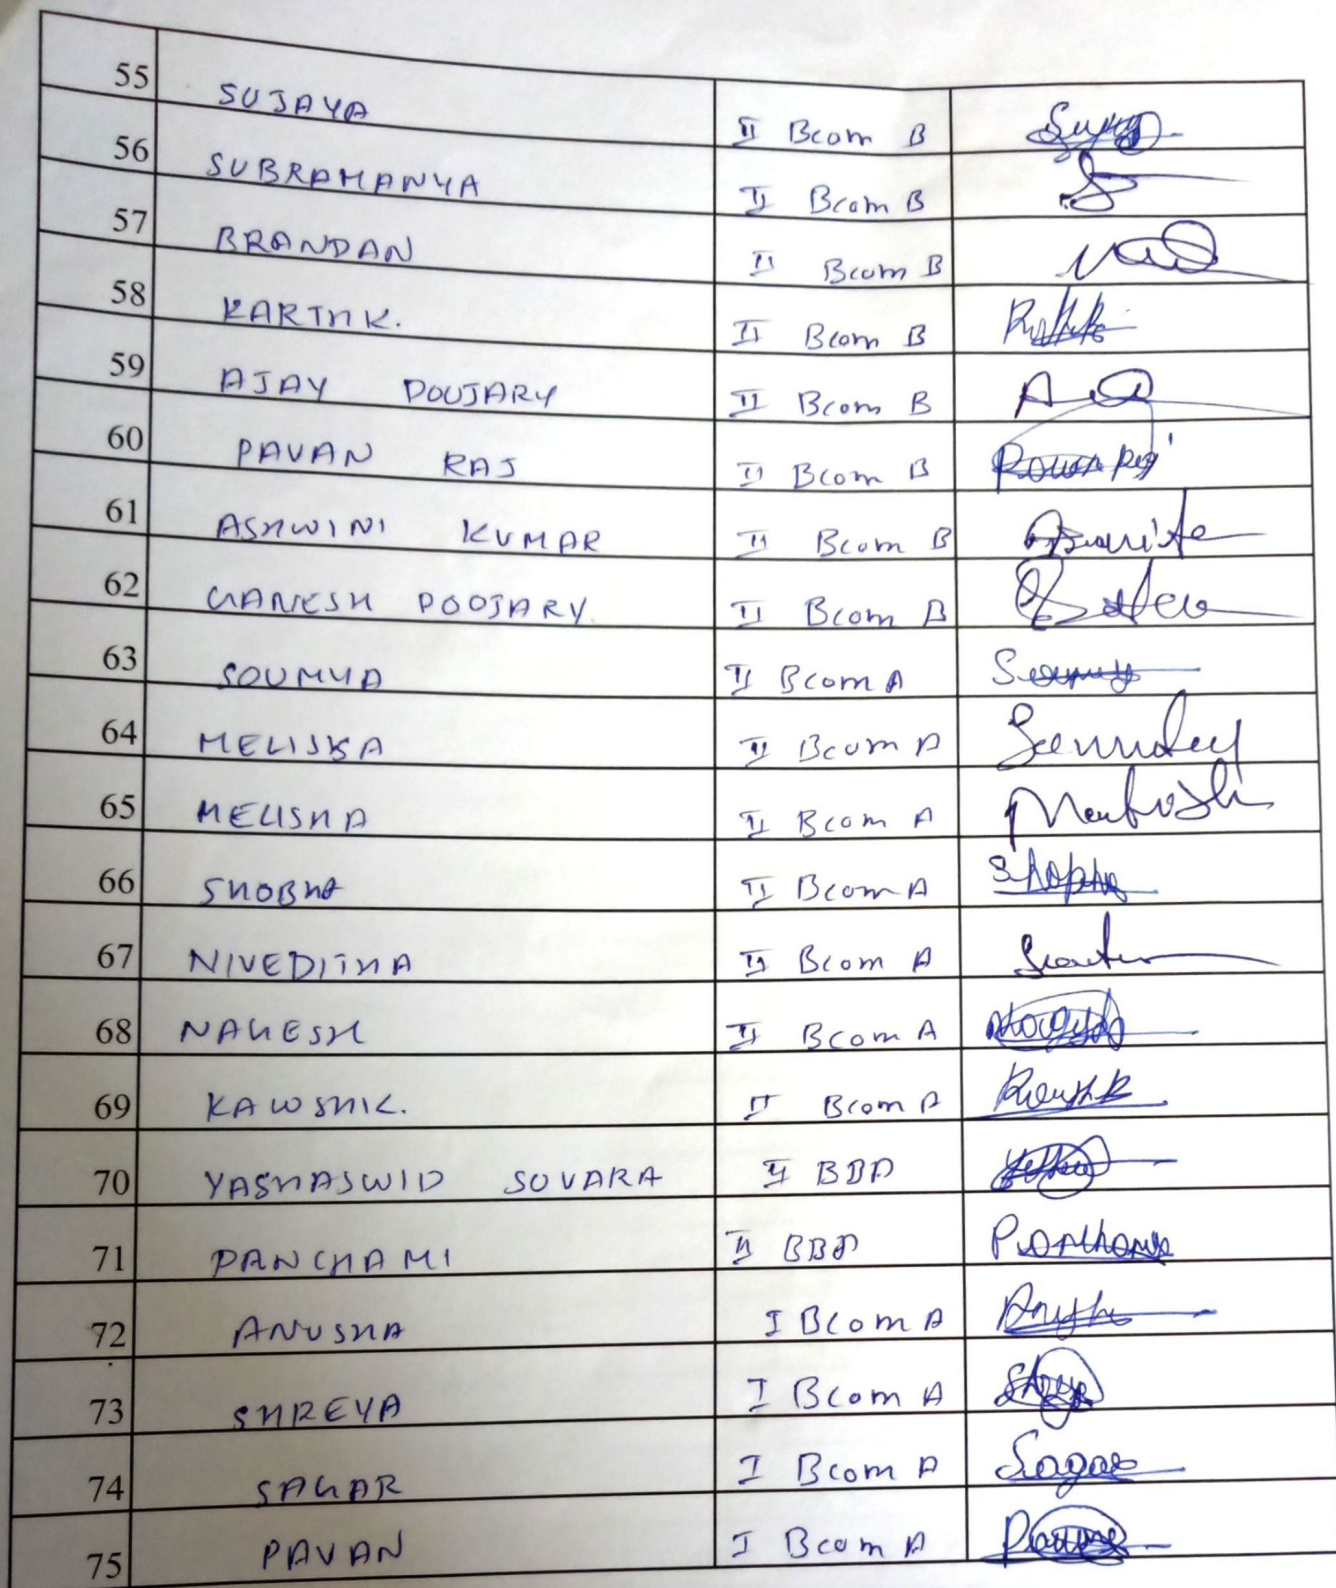 55 SUJAYA II Bcom B
56 SUBRAMANYA II Bcom B
57 BRANDAN II Bcom B
58 KARTHK. II Bcom B
59 AJAY POOJARY II Bcom B
60 PAVAN RAJ II Bcom B Pavan Raj
61 ASHWINI KUMAR II Bcom B
62 GANESH POOJARY. II Bcom B
63 SOUMYA II Bcom A
64 MELISKA II Bcom A
65 MELISHA II Bcom A
66 SHOBHA II Bcom A
67 NIVEDITHA II Bcom A
68 NAGESH II Bcom A
69 KAWSHIK. II Bcom A
70 YASHASWID SUVARA II BBA
71 PANCHAMI II BBA
72 ANUSHA I Bcom A
73 SHREYA I Bcom A
74 SAGAR I Bcom A Sagar
75 PAVAN I Bcom A